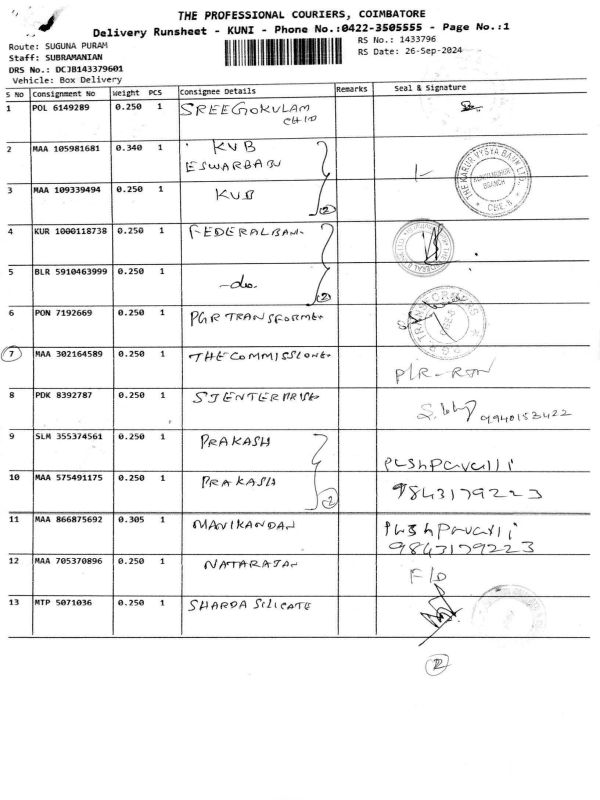 THE PROFESSIONAL COURIERS, COIMBATORE
Delivery Runsheet - KUNI - Phone No.:0422-3505555 - Page No.:1
Route: SUGUNA PURAM
RS No.: 1433796
Staff: SUBRAMANIAN
RS Date: 26-Sep-2024
DRS No.: DCJB143379601
Vehicle: Box Delivery
S No Consignment No Weight PCS Consignee Details Remarks Seal & Signature
1 POL 6149289 0.250 1 SREEGOKULAM
CHID
2 MAA 105981681 0.340 1 KVB
ESWARBAN
THE KARUR VYSYA BANK LTD.
BRANCH
CBE-8
3 MAA 109339494 0.250 1 KVB
2
4 KUR 1000118738 0.250 1 FEDERALBAN
5 BLR 5910463999 0.250 1 -do.
2
6 PON 7192669 0.250 1 PGR TRANSFORMER
7 MAA 302164589 0.250 1 THE COMMISSIONER
P/R-RTN
8 PDK 8392787 0.250 1 SJENTERPRISE
9940153422
9 SLM 355374561 0.250 1 PRAKASH
PUSHPAVALLI
10 MAA 575491175 0.250 1 PRAKASH
2
9843179223
11 MAA 866875692 0.305 1 MANIKANDAN
PUSHPAVALLI
9843179223
12 MAA 705370896 0.250 1 NATARAJAN
F/D
13 MTP 5071036 0.250 1 SHARDA SILICATE